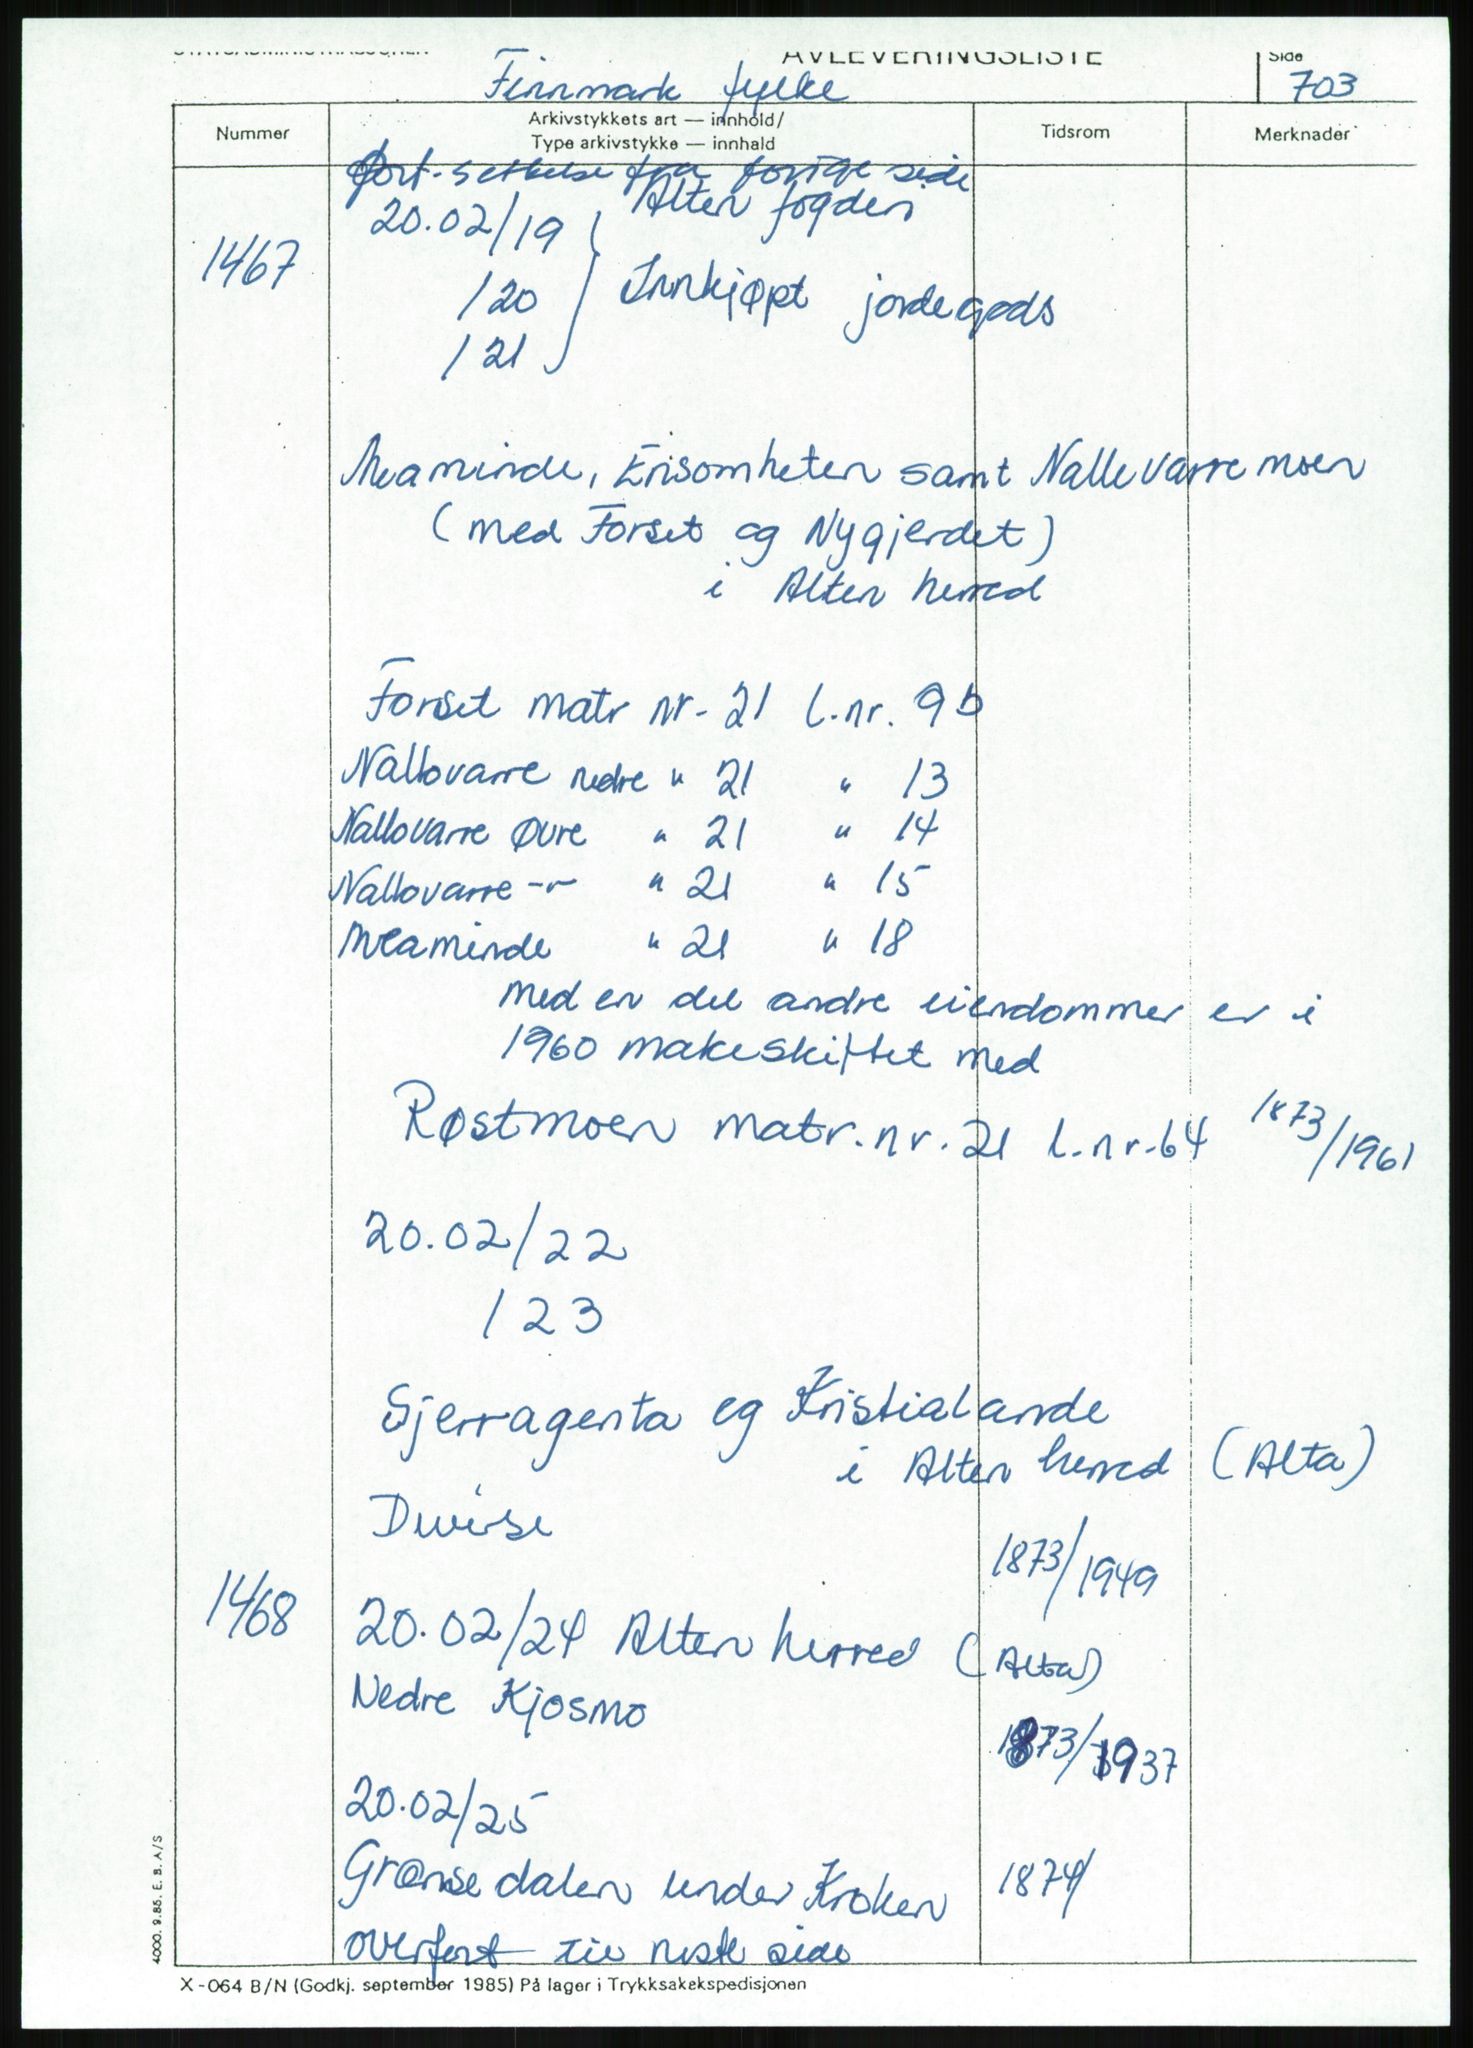 STATSADMINISTRASJONEN AVLEVERINGSLISTE Side
Finnmark fylke 703
Nummer Arkivstykkets art — innhold/ Tidsrom Merknader
Type arkivstykke — innhald
fort-settelse fra forige side
20.02/19 Alten fogderi
1467
/20 Innkjøpt jordegods
/21
Meaminde, Enisomheten samt Nallevarre moen
(med Forset og Nygjerdet)
i Alten herred
Forset matr nr. 21 l.nr. 9b
Nallovarre nedre " 21 " 13
Nallovarre Øvre " 21 " 14
Nallovarre -"- " 21 " 15
Meaminde " 21 " 18
med en del andre eiendommer er i
1960 makeskiftet med
Røstmoen matr.nr.21 l.nr.64 1873/1961
20.02/22
/23
Sjerragenta og Kristialande
i Alten herred (Alta)
Diverse
1873/1949
1468 20.02/24 Alten herred (Alta)
Nedre Kjosmo
1873/1937
20.02/25
Grønsedalen under Kroken 1874/
overført til neste side
4000. 9.85. E. B. A/S
X-064 B/N (Godkj. september 1985) På lager i Trykksakekspedisjonen